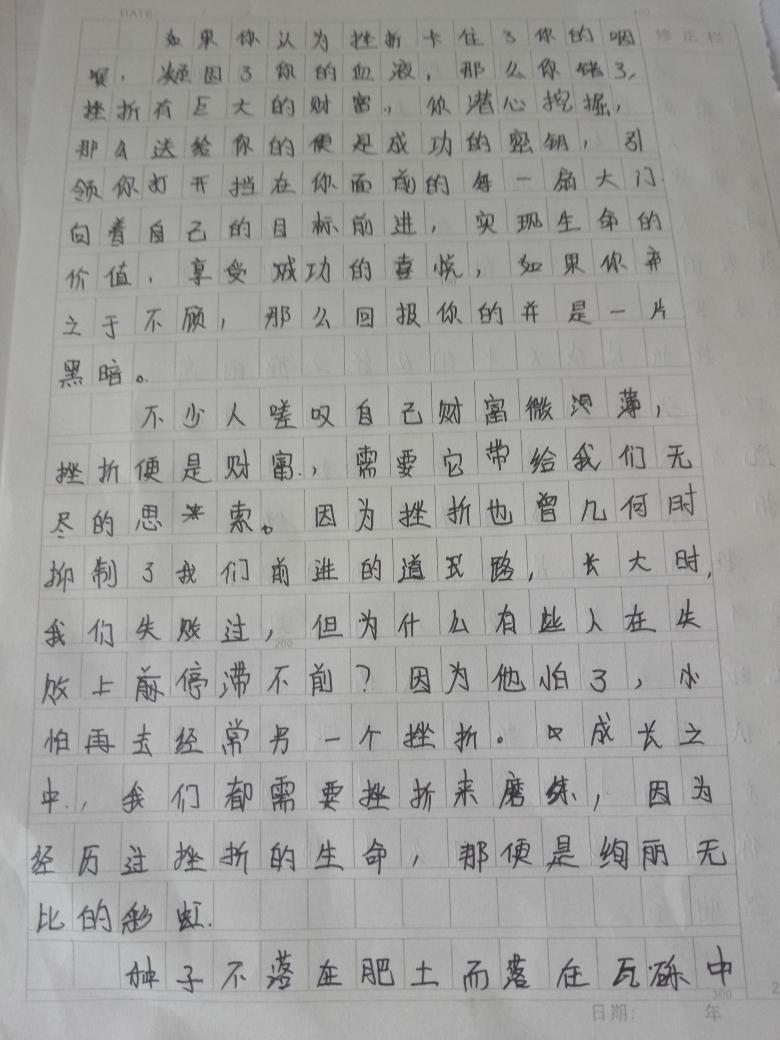 DATE
如果你认为挫折卡住了你的咽
喉，凝固了你的血液，那么你错了，
挫折有巨大的财富，你潜心挖掘，
那么送给你的便是成功的密钥，引
领你打开挡在你面前的每一扇大门.
向着自己的目标前进，实现生命的
价值，享受成功的喜悦，如果你弃
之于不顾，那么回报你的并是一片
黑暗。
不少人嗟叹自己财富微薄，
挫折便是财富.，需要它带给我们无
尽的思索。因为挫折也曾几何时
抑制了我们前进的道路，长大时，
我们失败过，但为什么有些人在失
败上前停滞不前？因为他怕了，
怕再去经常另一个挫折。成长之
中.，我们都需要挫折来磨练，因为
经历过挫折的生命，那便是绚丽无
比的彩虹.
种子不落在肥土而落在瓦砾中
修正栏
200
300
日期：
年